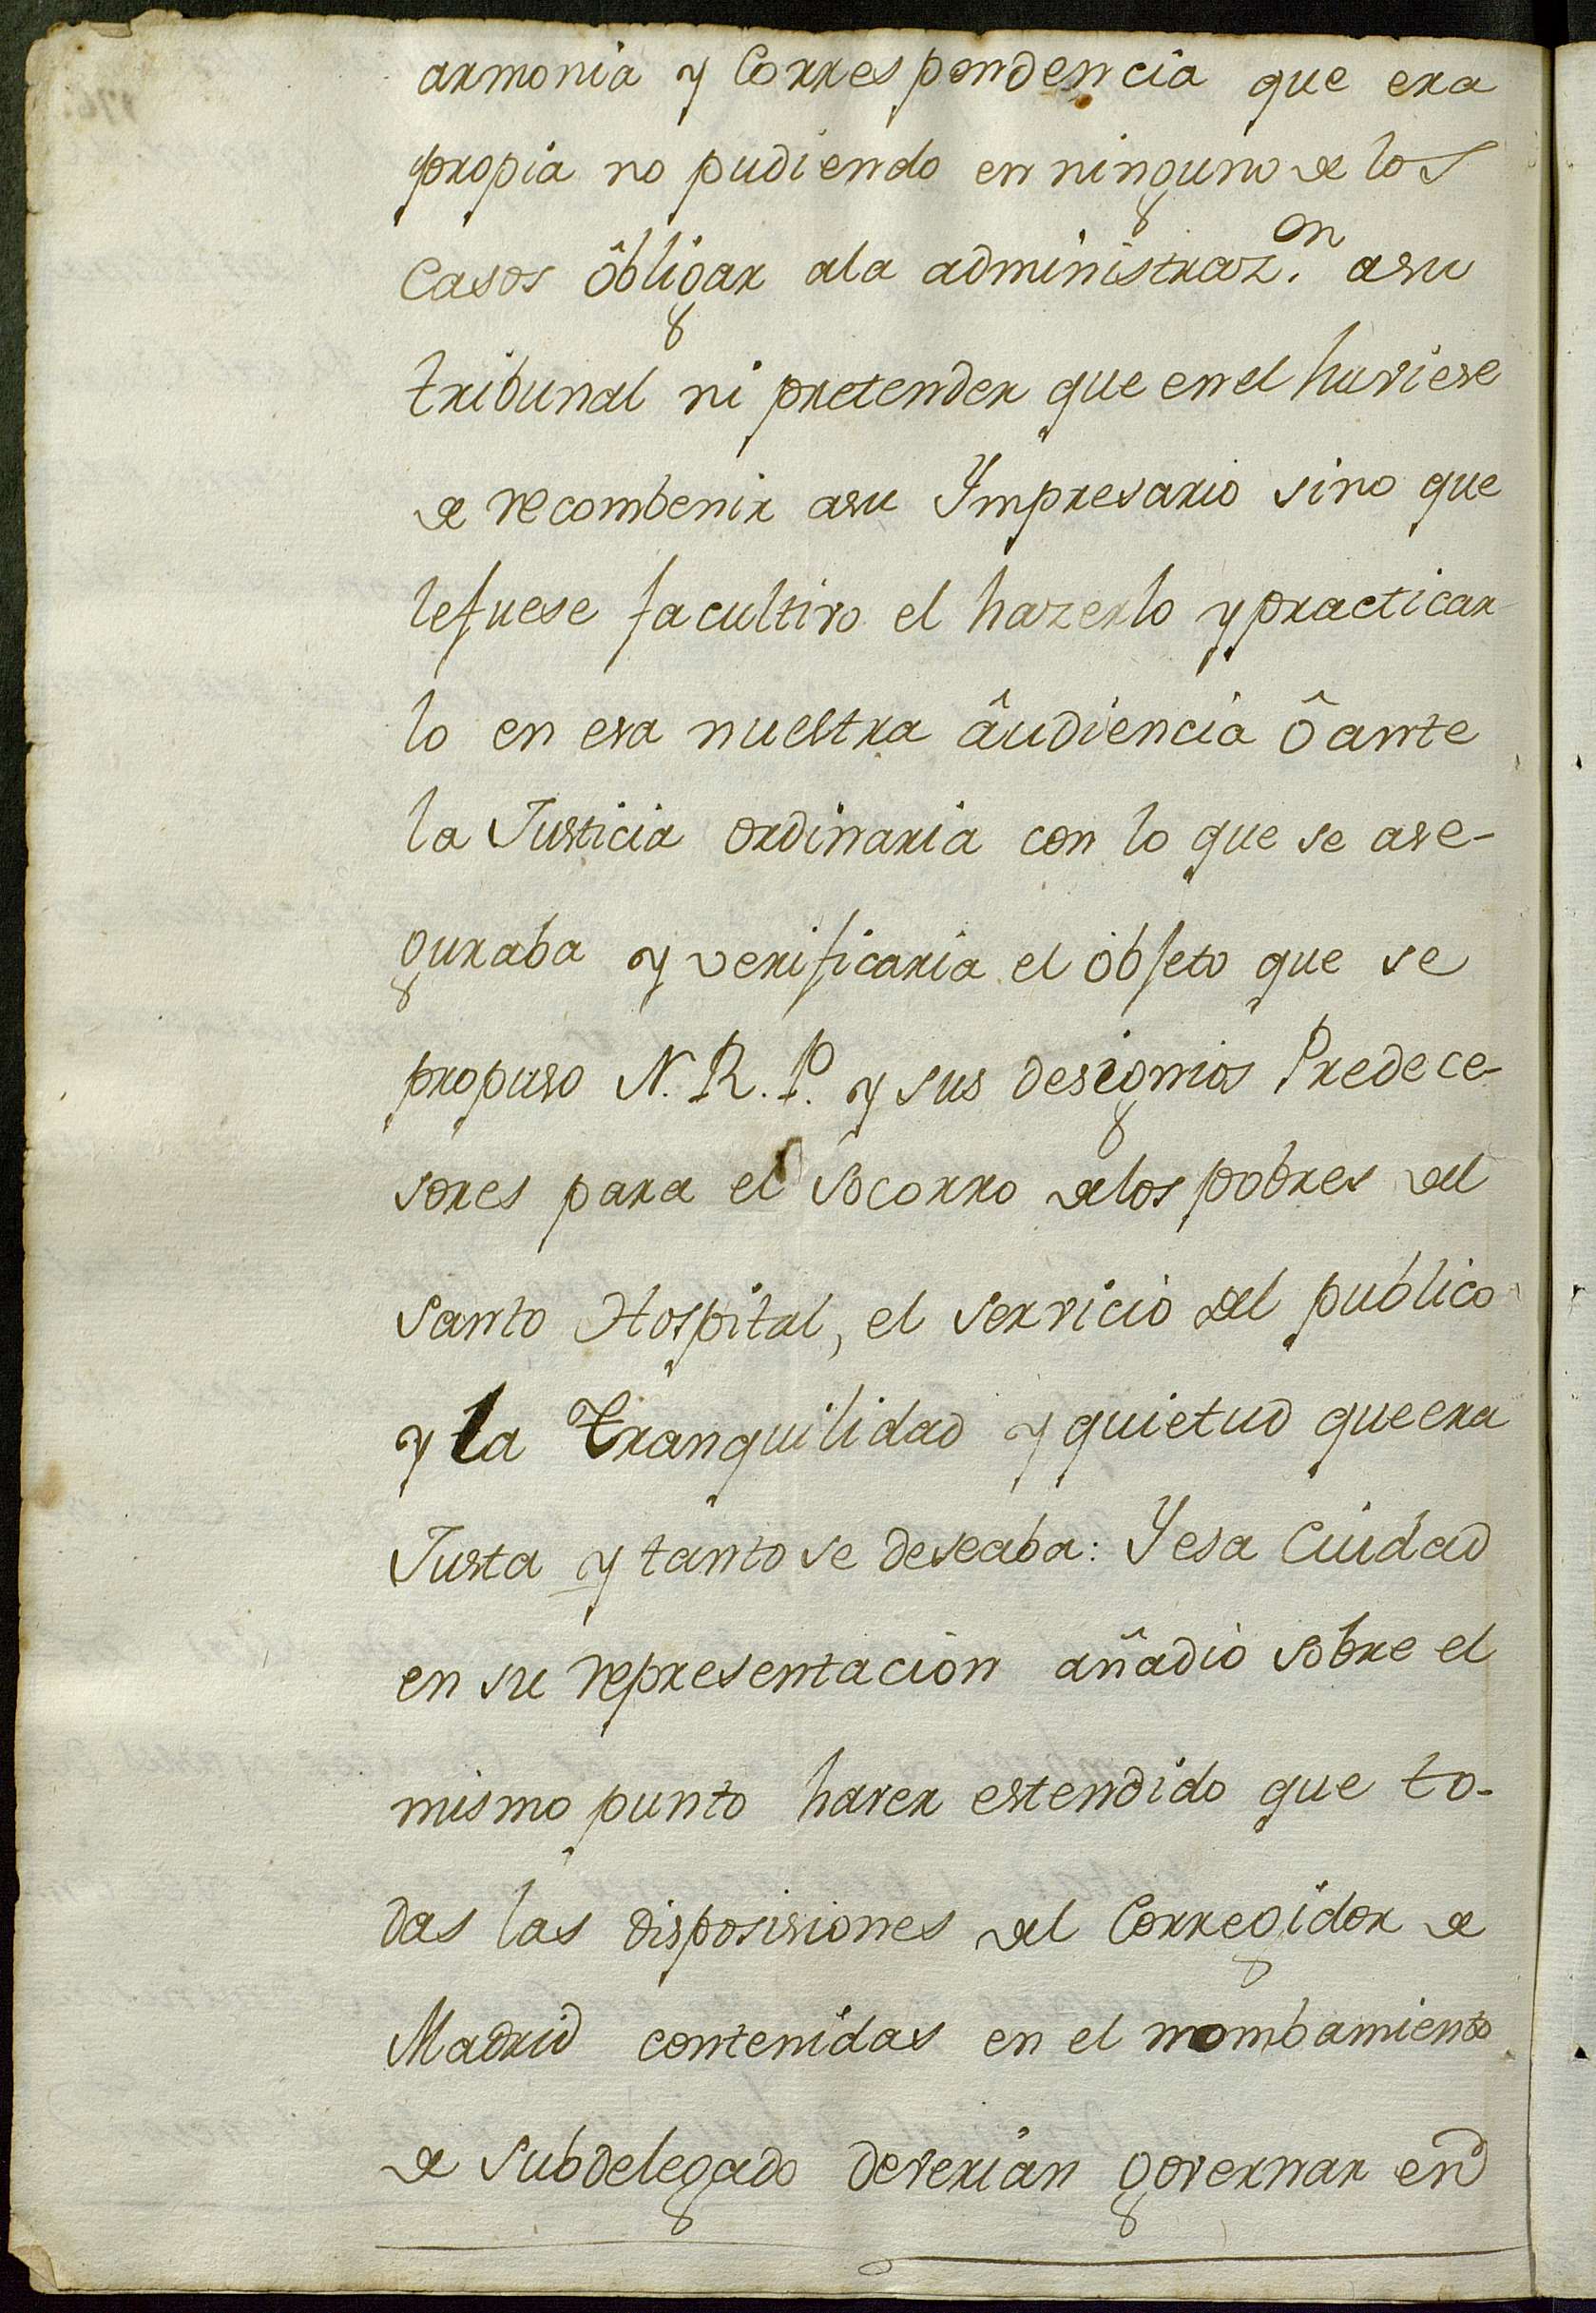 armonia y Correspondencia que era
propia no pudiendo en ninguno de los
Casos ôbligar ala administraz.on asu
tribunal ni pretender que en el huviese
de recombenir asu Ympresario sino que
lefuese facultivo el hazerlo y practicar
lo en esa nuestra âudiencia ô ante
la Justicia ordinaria con lo que se ase-
guraba y verificaria el objeto que se
propuso N. R. P. y sus designios Predece-
sores para el Socorro delos pobres del
Santo Hospital, el servicio del publico
y la tranquilidad y quietud que era
Justa y tanto se deseaba: Y esa Ciudad
en su representacion añadio sobre el
mismo punto haver estendido que to-
das las disposisiones del Corregidor de
Madrid contenidas en el nombamiento
de Subdelegado deverian governar en